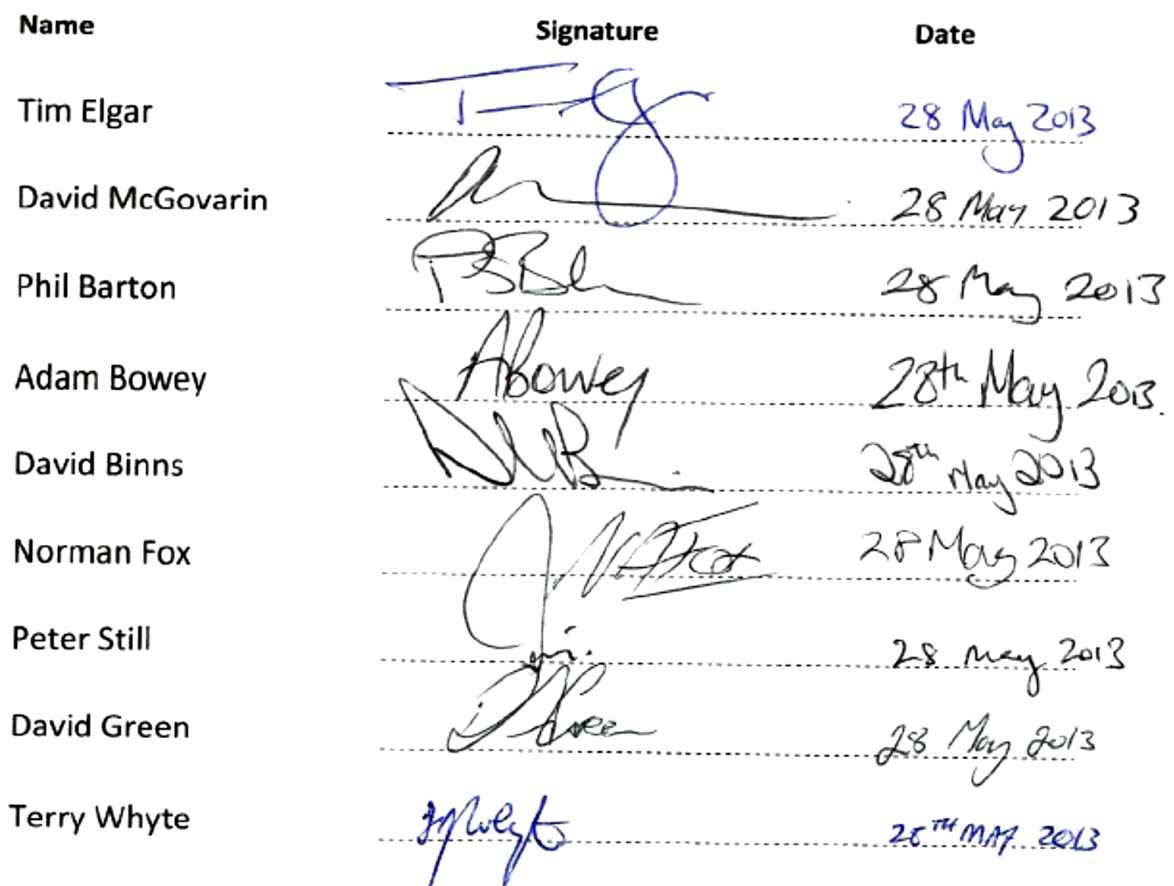 Name Signature Date
Tim Elgar 28 May 2013
David McGovarin 28 May 2013
Phil Barton 28 May 2013
Adam Bowey ABowey 28th May 2013
David Binns 28th May 2013
Norman Fox Fox 28 May 2013
Peter Still 28 May 2013
David Green DGreen 28 May 2013
Terry Whyte 28TH MAY 2013